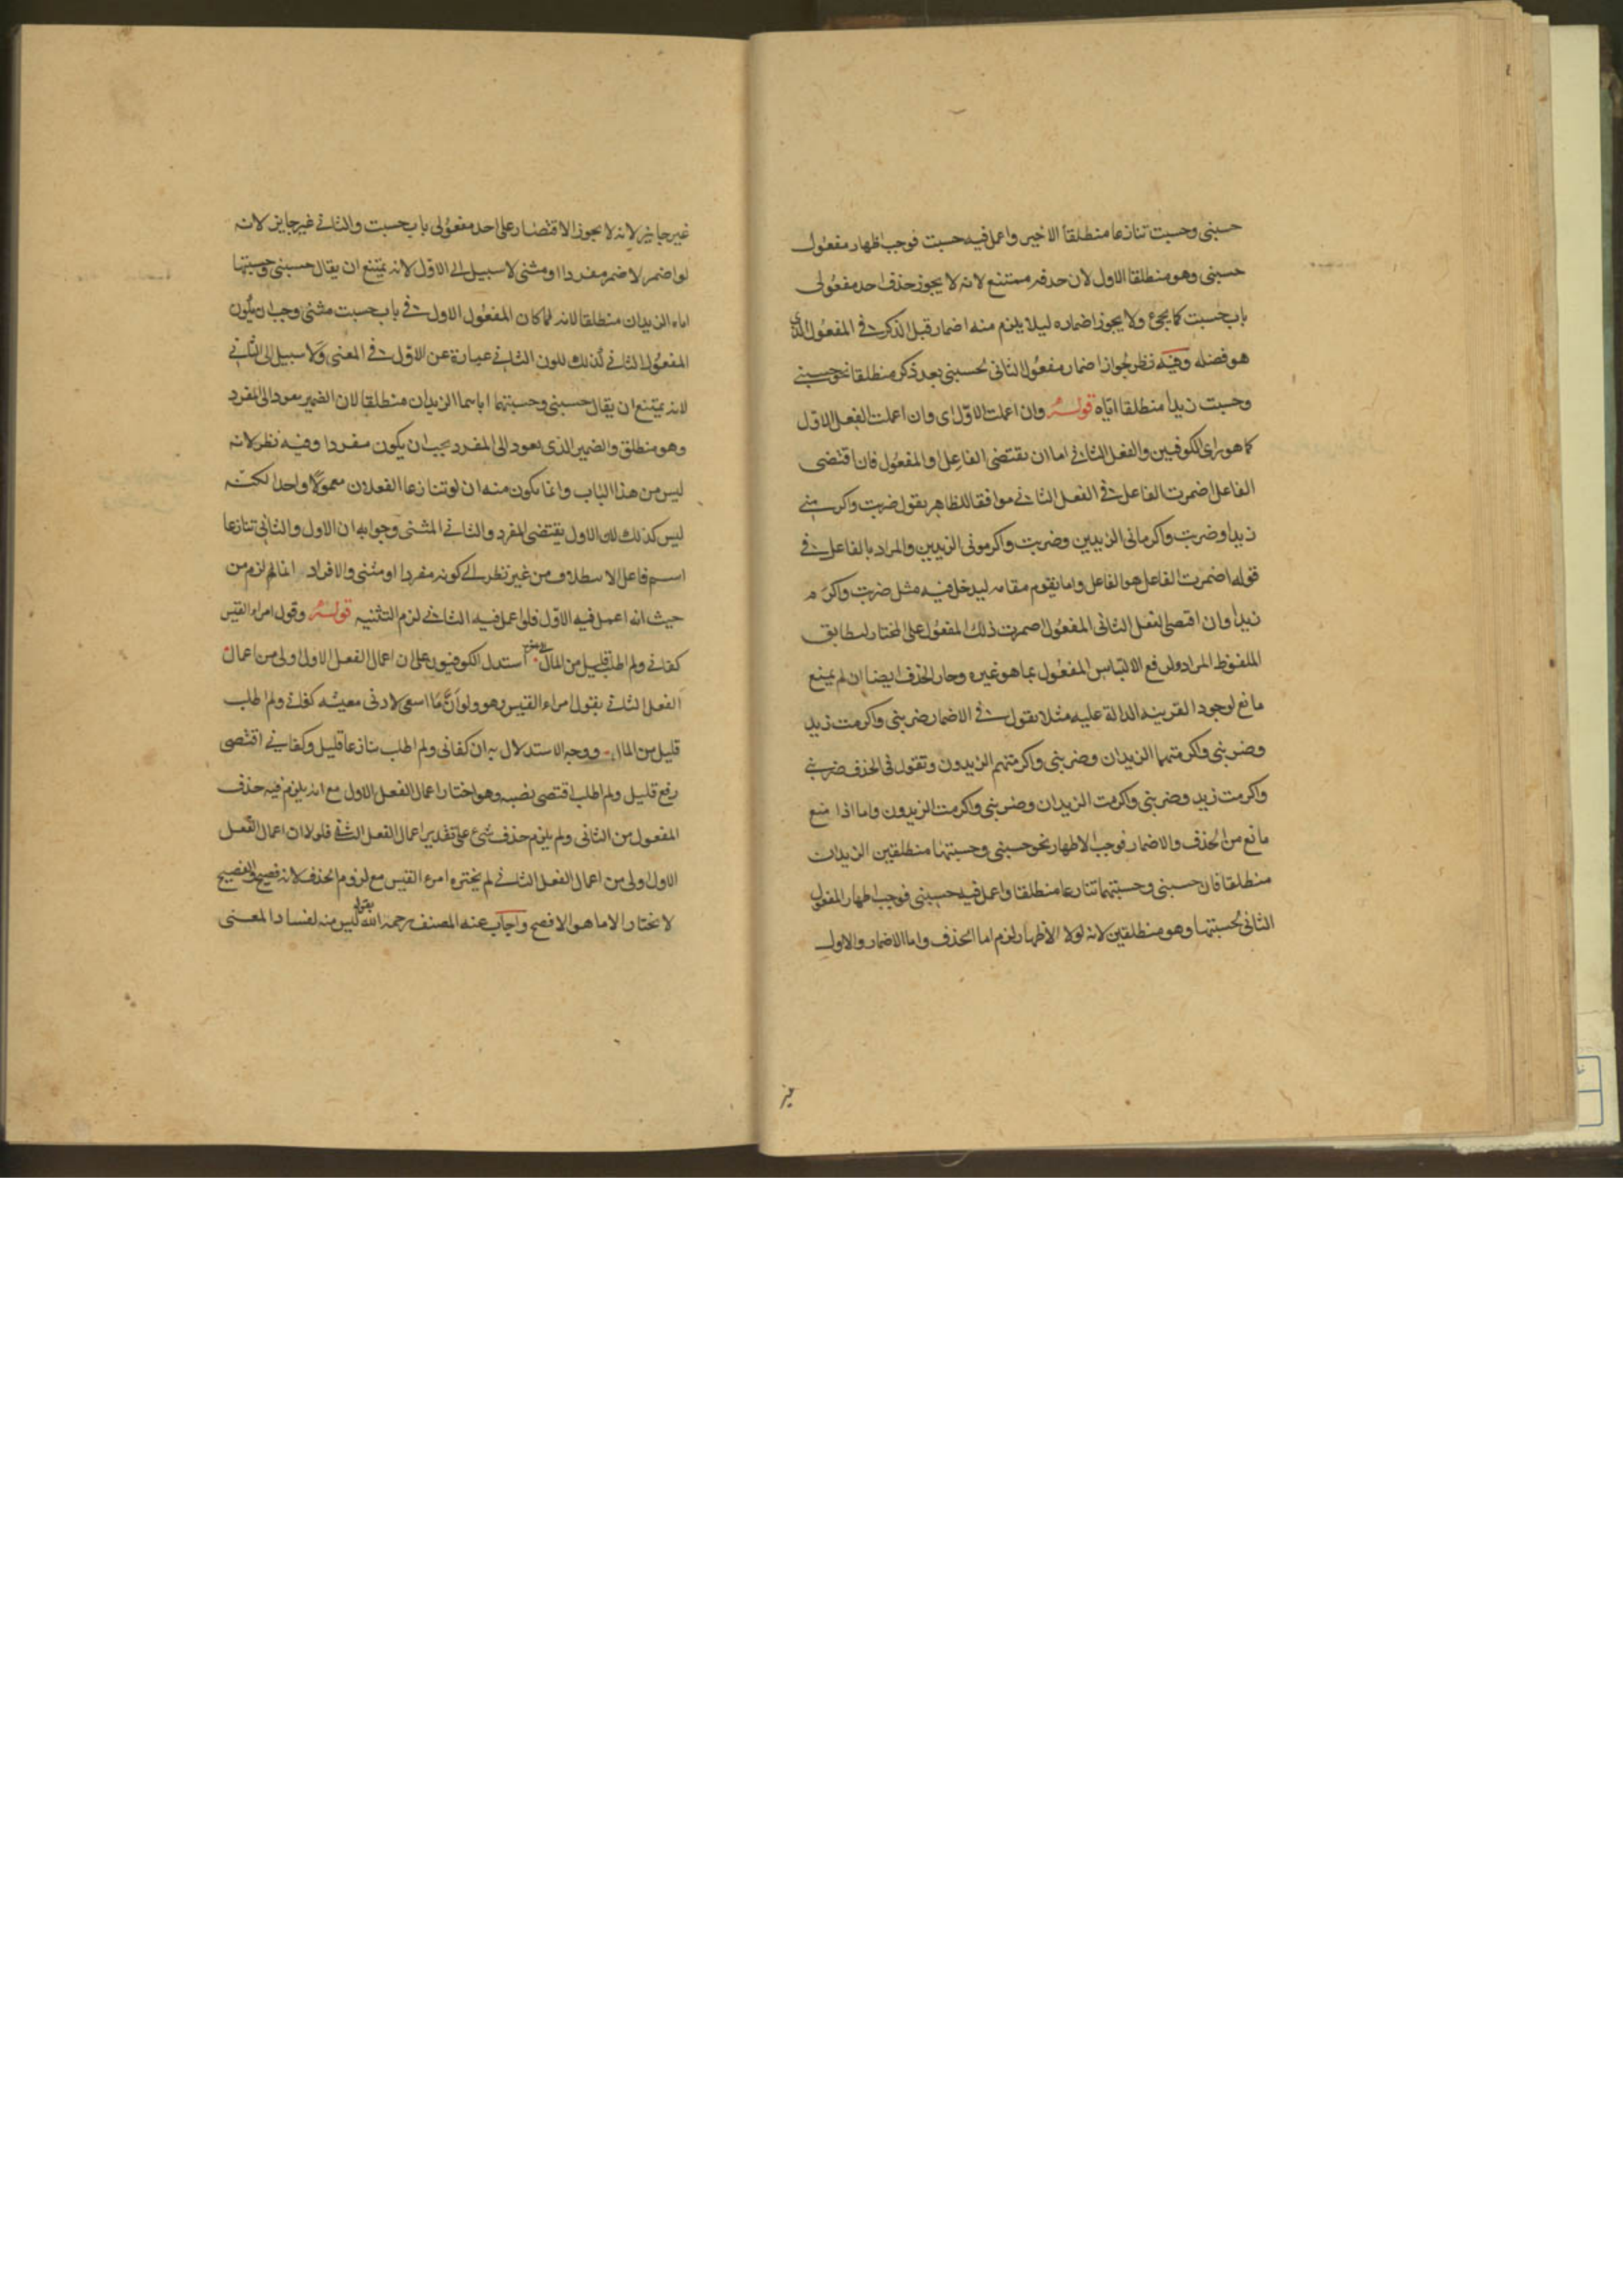 حسبنى وحسبت تنازعا منطلقا الاخير واعمل فيه حسبت فوجب اظهار مفعول
حسبنى وهو منطلقا الاول لان حذفه ممتنع لانه لا يجوز حذف احد مفعولى
باب حسبت كما يجئ ولا يجوز اضماره ليلا يلزم منه اضمار قبل الذكر فى المفعول الذى
هو فضله وفيه نظر لجواز اضمار مفعول الثانى لحسبنى بعد ذكر منطلقا نحو حسبنى
وحسبت زيدا منطلقا اياه قوله وان اعملت الاول اى وان اعملت الفعل الاول
كما هو راى الكوفيين والفعل الثانى اما ان يقتضى الفاعل او المفعول فان اقتضى
الفاعل اضمرت الفاعل فى الفعل الثانى موافقا للظاهر يقول ضربت واكرمنى
زيدا وضربت واكرمانى الزيدين وضربت واكرمونى الزيدين والمراد بالفاعل فى
قوله اضمرت الفاعل هو الفاعل واما يقوم مقامه ليدخل فيه مثل ضربت واكرم
زيدا وان اقتضى الفعل الثانى المفعول اضمرت ذلك المفعول على المختار ليطابق
الملفوظ المراد ولرفع الالتباس المفعول بما هو غيره وجاز الحذف ايضا ان لم يمنع
مانع لوجود القرينه الدالة عليه مثلا يقول فى الاضمار ضربنى واكرمت زيد
وضربنى واكرمتهما الزيدان وضربنى واكرمتهم الزيدون وتقول فى الحذف ضربنى
واكرمت زيد وضربنى واكرمت الزيدان وضربنى واكرمت الزيدون واما اذا منع
مانع من الحذف والاضمار فوجب الاظهار نحو حسبنى وحسبتهما منطلقين الزيدان
منطلقا فان حسبنى وحسبتهما تنازعا منطلقا واعمل فيه حسبنى فوجب اظهار المفعول
الثانى لحسبتهما وهو منطلقين لانه لولا الاظهار لزم اما الحذف واما الاضمار والاول
غير جايز لانه لا يجوز الاقتصار على احد مفعولى باب حسبت والثانى غير جايز لانه
لو اضمر لاضمر مفردا او مثنى لا سبيل الى الاول لانه يمتنع ان يقال حسبنى وحسبتهما
اياه الزيدان منطلقا لانه لما كان المفعول الاول فى باب حسبت مثنى وجب ان يكون
المفعول الثانى كذلك لكون الثانى عبارة عن الاول فى المعنى ولا سبيل الى الثانى
لانه يمتنع ان يقال حسبنى وحسبتهما اياهما الزيدان منطلقا لان الضمير يعود الى المفرد
وهو منطلق والضمير الذى يعود الى المفرد يجب ان يكون مفردا وفيه نظر لانه
ليس من هذا الباب وانما يكون منه ان لو تنازعا الفعلان معمولا واحدا لكنه
ليس كذلك لان الاول يقتضى المفرد والثانى المثنى وجوابه ان الاول والثانى تنازعا
اسم فاعل الانطلاق من غير نظر الى كونه مفردا او مثنى والافراد انما لزم من
حيث انه اعمل فيه الاول فلو اعمل فيه الثانى لزم التثنيه قوله وقول امراء القيس
كفانى ولم اطلب قليل من المال استدل الكوفيون على ان اعمال الفعل الاول اولى من اعمال
الفعل الثانى بقول امراء القيس وهو ولو ان ما اسعى لادنى معيشه كفانى ولم اطلب
قليل من المال ووجه الاستدلال به ان كفانى ولم اطلب تنازعا قليل وكفانى اقتضى
رفع قليل ولم اطلب اقتضى نصبه وهو اختار اعمال الفعل الاول مع انه يلزم فيه حذف
المفعول من الثانى ولم يلزم حذف شئ على تقدير اعمال الفعل الثانى فلولا ان اعمال الفعل
الاول اولى من اعمال الفعل الثانى لم يختره امرء القيس مع لزوم الحذف لانه فصيح والفصيح
لا يختار الا ما هو الافصح واجاب عنه المصنف رحمه الله بقوله ليس منه لفساد المعنى